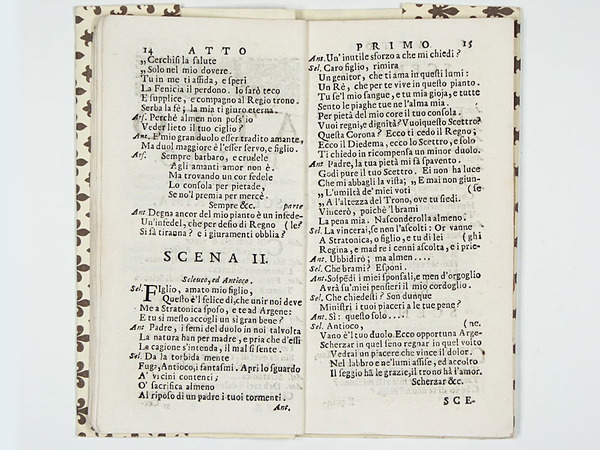 14 ATTO
„Cerchisi la salute
„Solo nel mio dovere.
Tu in me ti affida, e speri
La Fenicia il perdono. Io sarò teco
E supplice, e compagno al Regio trono.
Serba la fè; la mia ti giuro eterna.
Ars. Perchè almen non poss'io
Veder lieto il tuo ciglio?
Ant. E'l mio gran duolo esser tradito amante,
Ma duol maggiore è l'esser servo, e figlio.
Ars. Sempre barbaro, e crudele
Agli amanti amor non è.
Ma trovando un cor fedele
Lo consola per pietade,
Se no'l premia per mercè.
Sempre &c. parte
Ant. Degna ancor del mio pianto è un infede-
Un'infedel, che per desio di Regno (le?
Si fà tiranna? e i giuramenti obblia?
SCENA II.
Seleuco, ed Antioco.
Sel. FIglio, amato mio figlio,
Questo è'l felice dì, che unir noi deve
Me a Stratonica sposo, e te ad Argene:
E tu sì mesto accogli un sì gran bene?
Ant Padre, i semi del duolo in noi talvolta
La natura han per madre, e pria che d'essi
La cagione s'intenda, il mal si sente.
Sel. Da la torbida mente
Fuga, Antioco, i fantasmi. Apri lo sguardo
A' vicini contenti;
O' sacrifica almeno
Al riposo di un padre i tuoi tormenti.
Ant.
PRIMO 15
Ant. Un'inutile sforzo a che mi chiedi?
Sel. Caro figlio, rimira
Un genitor, che ti ama in questi lumi:
Un Rè, che per te vive in questo pianto.
Tu se'l mio sangue, e tu mia gioja, e tutte
Sento le piaghe tue ne l'alma mia.
Per pietà del mio core il tuo consola.
Vuoi regni, e dignità? Vuoi questo Scettro?
Questa Corona? Ecco ti cedo il Regno;
Ecco il Diadema, ecco lo Scettro, e solo
Ti chiedo in ricompensa un minor duolo.
Ant Padre, la tua pietà mi fà spavento.
Godi pure il tuo Scettro. Ei non ha luce
Che mi abbagli la vista; „E mai non giun-
„L'umiltà de' miei voti (se
„A l'altezza del Trono, ove tu siedi.
Vincerò, poichè 'l brami
La pena mia. Nasconderolla almeno.
Sel. La vincerai, se non l'ascolti: Or vanne
A Stratonica, o figlio, e tu di lei (ghi
Regina, e madre i cenni ascolta, e i prie-
Ant. Ubbidirò; ma almen....
Sel. Che brami? Esponi.
Ant. Sospēdi i miei sponsali, e men d'orgoglio
Avrà su'miei pensieri il mio cordoglio.
Sel. Che chiedesti? Son dunque
Ministri i tuoi piaceri a le tue pene?
Ant. Sì: questo solo....
Sel. Antioco, (ne.
Vano è'l tuo duolo. Ecco opportuna Arge-
Scherzar in quel seno regnar in quel volto
Vedrai un piacere che vince il dolor.
Nel labbro e ne'lumi assise, ed accolto
Il seggio hā le grazie, il trono hà l'amor.
Scherzar &c.
SCE-